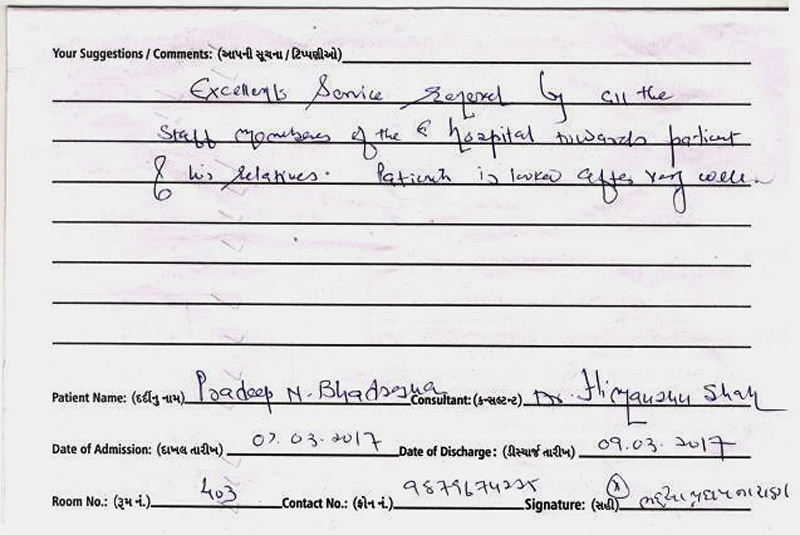 Your Suggestions / Comments: (આપની સૂચના / ટિપ્પણીઓ)
Excellents Service by all the
Staff members of the hospital towards patient
& his relatives. Patients is looked after very well.
Patient Name: (દર્દીનું નામ) Pradeep N. Consultant: (કન્સલ્ટન્ટ) Dr. Himanshu Shah
Date of Admission: (દાખલ તારીખ) 07.03.2017 Date of Discharge: (ડીસ્ચાર્જ તારીખ) 09.03.2017
Room No.: (રૂમ નં.) 403 Contact No.: (ફોન નં.) Signature: (સહી)